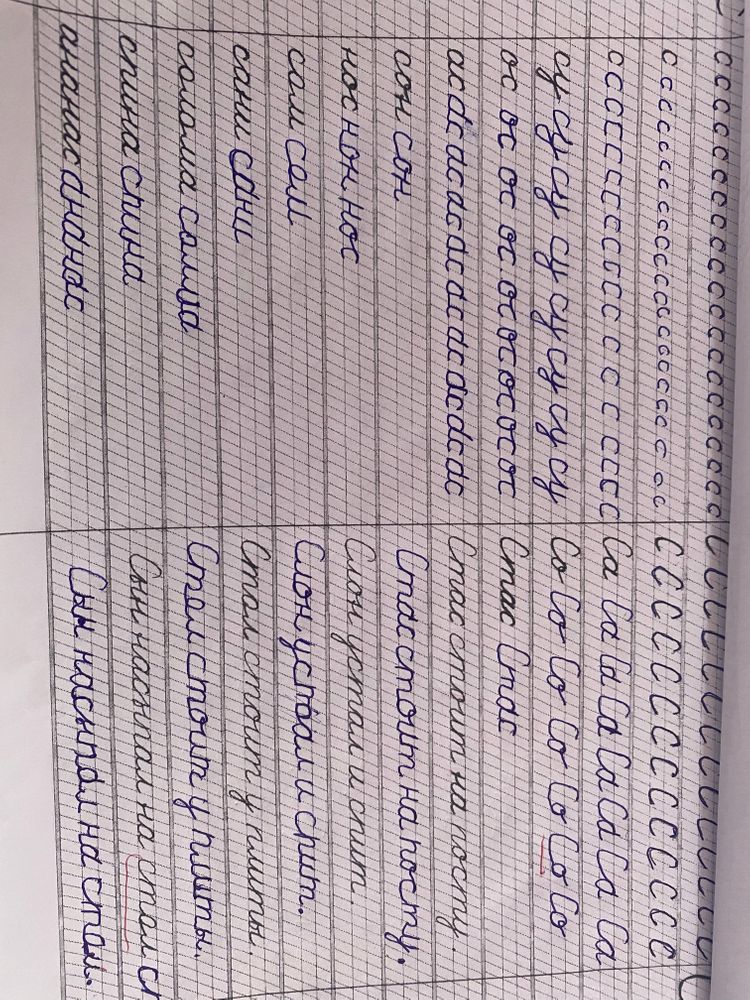 с с с с с с с с с с с с с с с с с с с с с с с с с с
с с с с с с с с с с с с с с с с с с с с с с с с с с
с с с с с с с с с с с с с с с с с с с с
су су су су су су су су
ос ос ос ос ос ос ос ос ос
ас ас ас ас ас ас ас ас ас ас ас
сон сон
нос нон нос
сом сом
сани сани
солома солма
спина спина
ананас ананас
С С С С С С С С С С С С С
С С С С С С С С С С С С
Са Са Са Са Са Са Са Са Са
Со Со Со Со Со Со Со Со
Стас Стас
Стас стоит на посту.
Стас стоит на посту.
Слон устал и спит.
Слон устал и спит.
Стол стоит у плиты.
Стол стоит у плиты.
Сын насыпал на стол
Сын насыпал на стол.